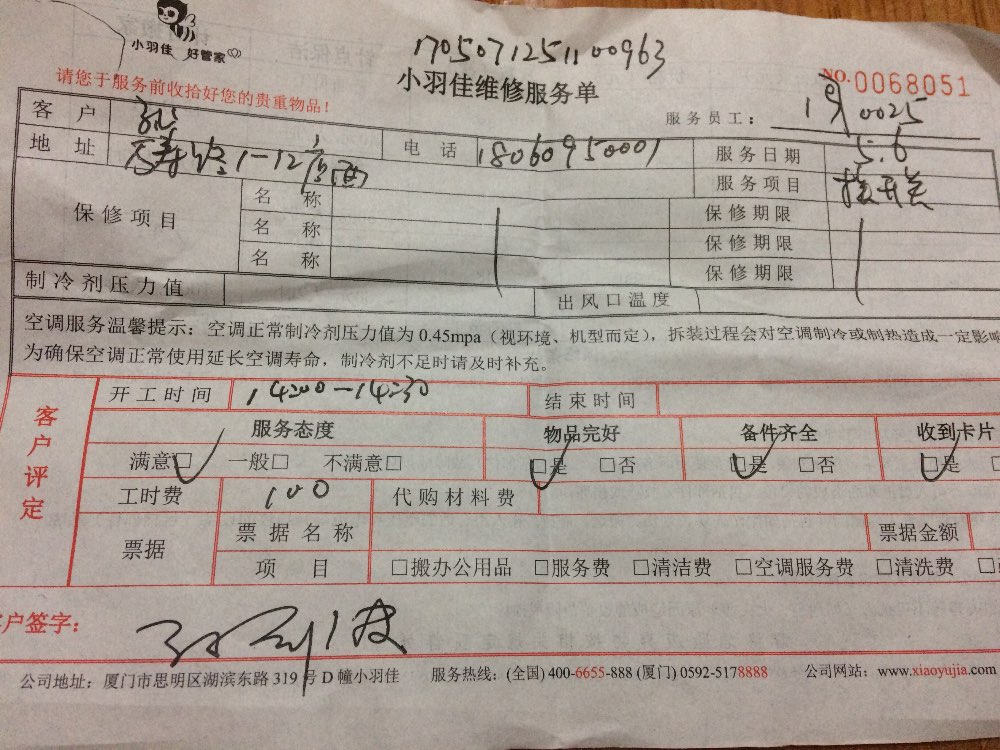 小羽佳 好管家
1705071251100963
小羽佳维修服务单
NO.0068051
请您于服务前收拾好您的贵重物品！
服务员工： 0025
客户
地址 万寿路1-12 电话 18060950001 服务日期 5.6
服务项目 接开关
保修项目 名称 保修期限
名称 保修期限
名称 保修期限
制冷剂压力值 出风口温度
空调服务温馨提示：空调正常制冷剂压力值为 0.45mpa（视环境、机型而定），拆装过程会对空调制冷或制热造成一定影响
为确保空调正常使用延长空调寿命，制冷剂不足时请及时补充。
客户评定
开工时间 14:00-14:30 结束时间
服务态度 物品完好 备件齐全 收到卡片
满意□ 一般□ 不满意□ □是 □否 □是 □否 □是
工时费 100 代购材料费
票据 票据名称 票据金额
项目 □搬办公用品 □服务费 □清洁费 □空调服务费 □清洗费
客户签字：
公司地址：厦门市思明区湖滨东路 319 号 D 幢小羽佳 服务热线：(全国) 400-6655-888 (厦门) 0592-5178888 公司网站：www.xiaoyujia.com